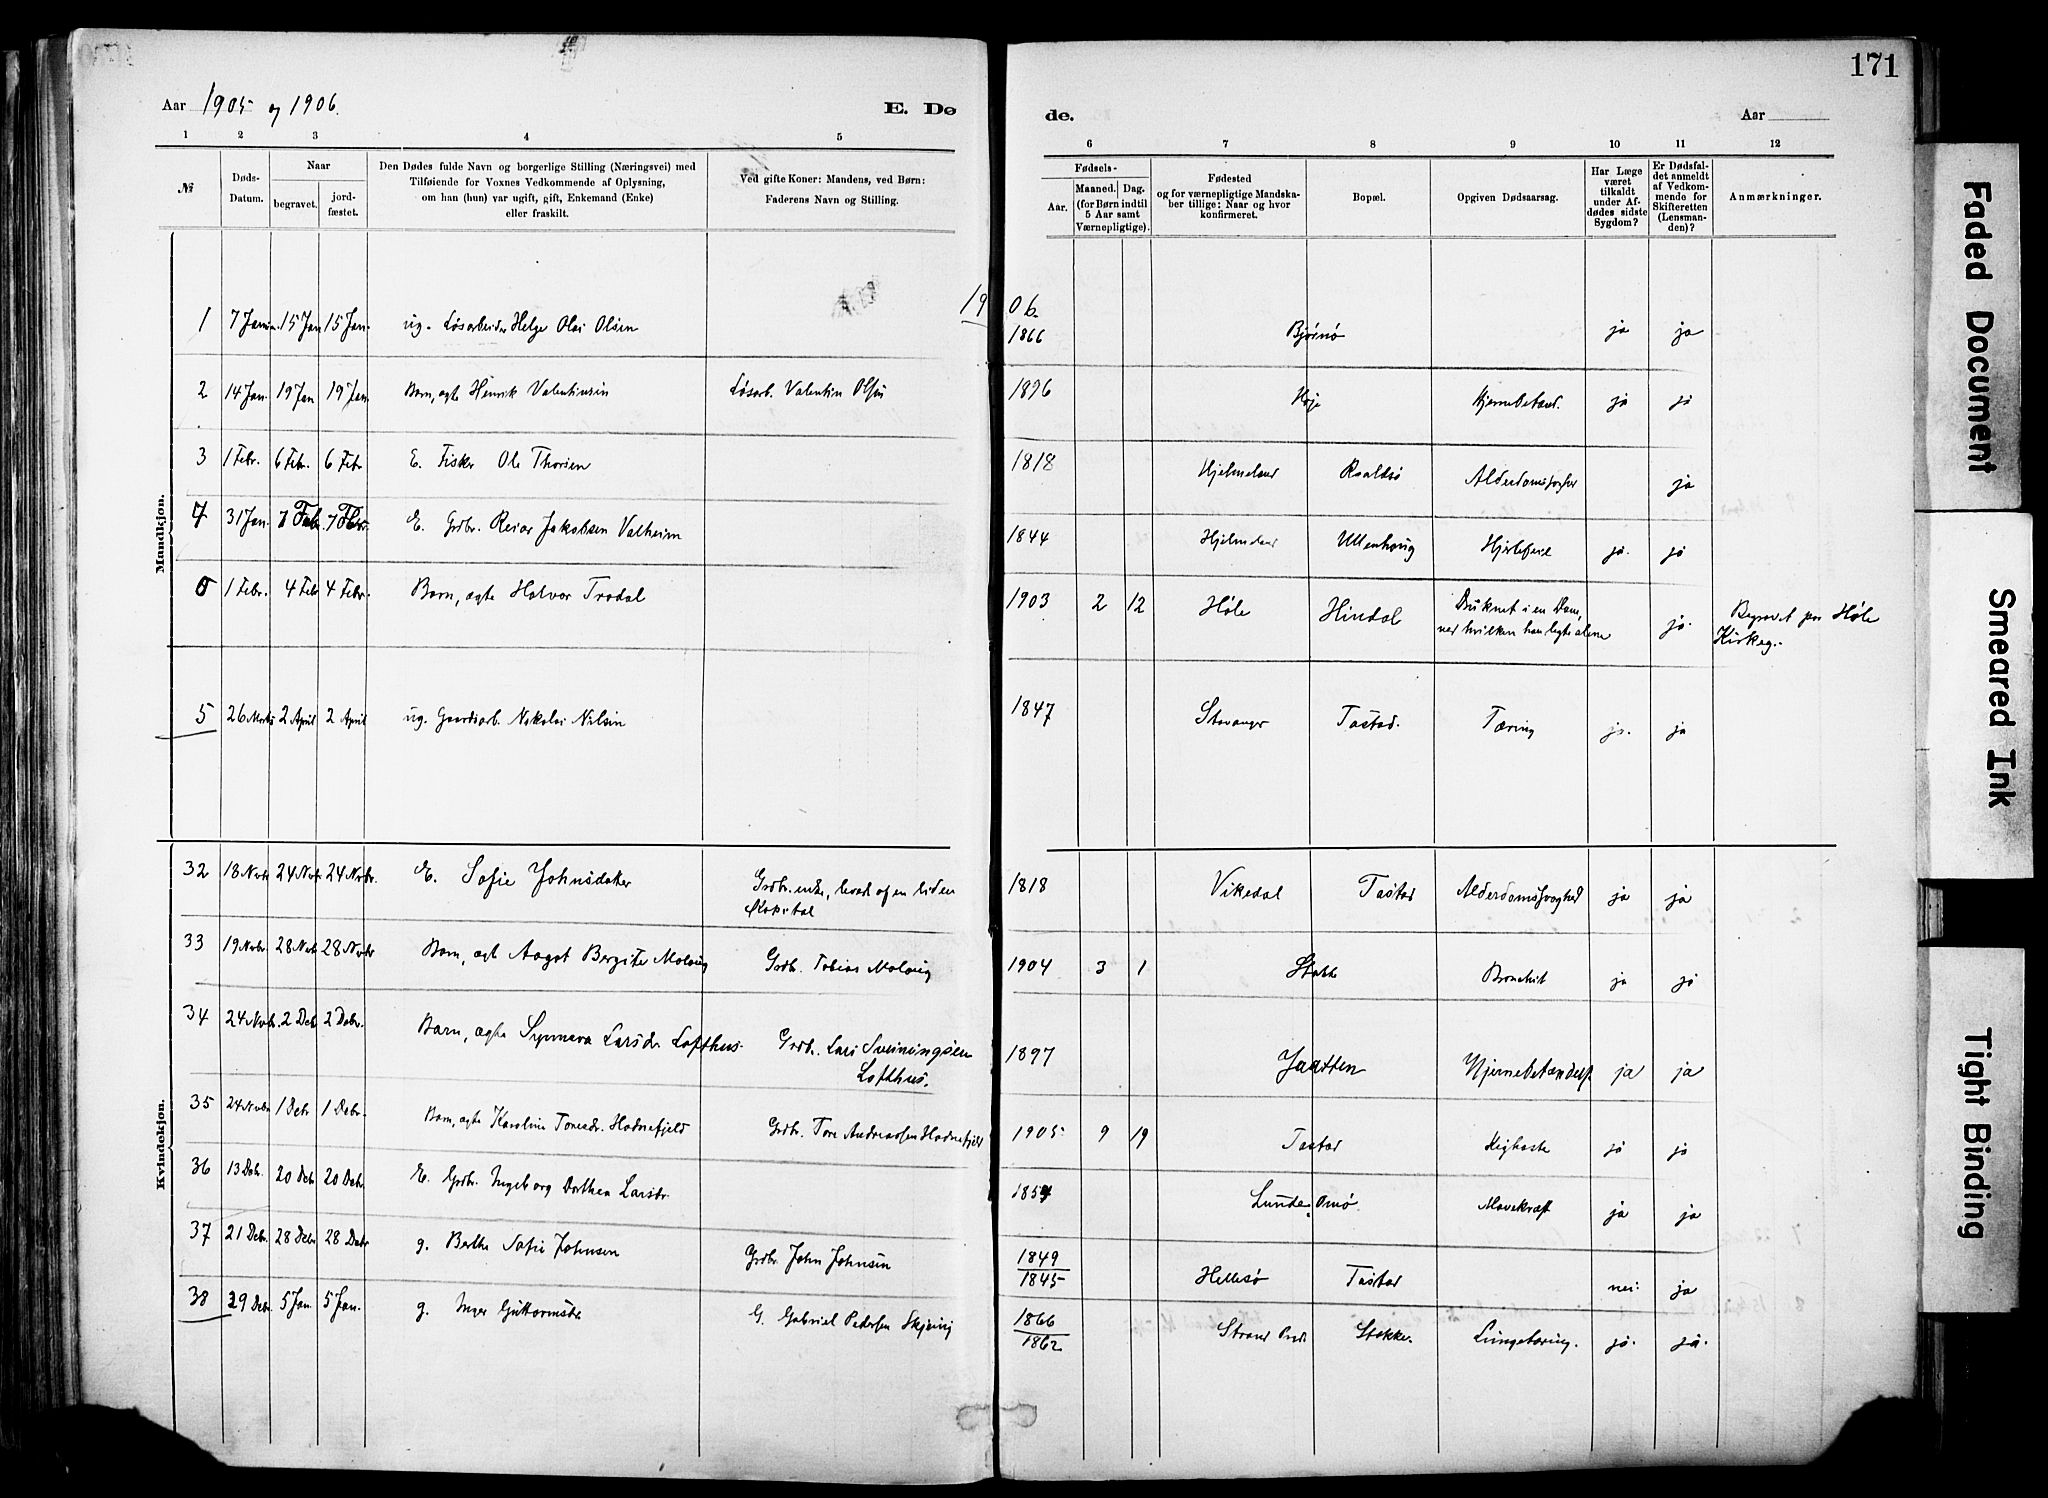 171
Aar 1905 og 1906.
E. Dø
de.
Aar
1 2 3 4 5
6 7 8 9 10 11 12
№
Døds-
Datum.
Naar
begravet.
jord-
fæstet.
Den Dødes fulde Navn og borgerlige Stilling (Næringsvei) med
Tilføiende for Voxnes Vedkommende af Oplysning,
om han (hun) var ugift, gift, Enkemand (Enke)
eller fraskilt.
Ved gifte Koner: Mandens, ved Børn:
Faderens Navn og Stilling.
Fødsels-
Aar.
Maaned. Dag.
(for Børn indtil
5 Aar samt
Værnepligtige).
Fødested
og for værnepligtige Mandska-
ber tillige: Naar og hvor
konfirmeret.
Bopæl.
Opgiven Dødsaarsag.
Har Læge
været
tilkaldt
under Af-
dødes sidste
Sygdom?
Er Dødsfal-
det anmeldt
af Vedkom-
mende for
Skifteretten
(Lensman-
den)?
Anmærkninger.
Mandkjøn.
1906.
1 7 Jan. 15 Jan 15 Jan. ug. Løsarbeider Helge Olai Olsen 1866 Bjørnø ja ja
2 14 Jan. 19 Jan 19 Jan. Barn, ægte Henrik Valentinsen Løsarb. Valentin Olsen 1896 Hjernebetænd. ja ja
3 1 Febr. 6 Febr. 6 Febr E. Fisker Ole Thorsen 1818 Hjelmeland ja
4 31 Jan. 7 Febr. 7 Febr. E. Grdbr. Reiar Jakobsen Valheim 1844 Hjelmeland Ullenhaug Hjertefeil ja. ja
1 Febr. 4 Febr 4 Febr. Barn, ægte Halvor Tradal 1903 2 12 Høle Hindal Druknet i en Dam,
ved hvilken han legte alene ja. Begravet paa Høle
Kirkeg.
5 26 Marts 2 April 2 April ug. Gaardsarb. Nikolai Nilsen 1847 Stavanger Tastad. Tæring ja. ja
Kvindekjøn.
32 18 Novbr 24 Novbr 24 Novbr. E. Sofie Johnsdatter Grdbr. enke, levede af en liden
Kapital 1818 Vikedal Tastad Alderdomssvaghed ja ja
33 19 Novbr. 28 Novbr 28 Novbr Barn, ægte Aagot Bergitte Molaug Grdbr. Tobias Molaug 1904 3 1 Bronchit ja ja
34 24 Novbr. 2 Debr. 2 Debr. Barn, ægte Synneva Larsdr Lofthus. Grdbr. Lars Sveiningsen
Lofthus. 1897 Jaatten Hjernebetændels. ja ja
35 24 Novbr 1 Debr 1 Debr. Barn, ægte Karoline Toresdr. Hodnefjeld Grdbr. Tore Andreassen Hodnefjeld 1905 9 19 Tastad Kighoste ja ja
36 13 Debr. 20 Debr 20 Debr E. Grdbr. Ingeborg Dorthea Larsdr. Lunde, Omø. Mavekræft ja ja
37 21 Debr. 28 Debr 28 Debr g. Berthe Sofie Johnsen Grdbr John Johnsen 1849
1845 Hellesø Tastad nei: ja
38 29 Debr. 5 Jan. 5 Jan. g. Inger Guttormsdr G. Gabriel Pedersen Skjæveig 1866
1862 Strand Stokke. Lungetæring. ja. ja.
Faded Document
Smeared Ink
Tight Binding